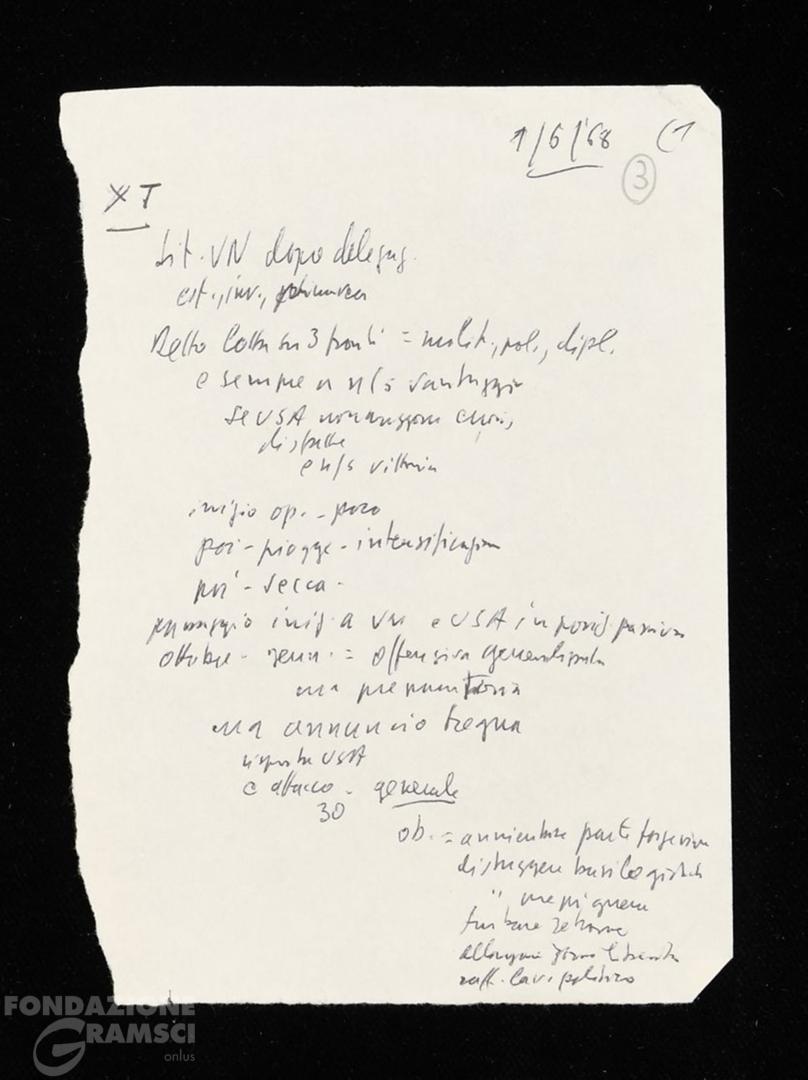 1/6/'68 (1
3
XT
Sit. VN dopo deleg.
est., inv., primavera
Detto lotta su 3 fronti = milit., pol., dipl.
e sempre a n/s vantaggio
se USA non
disfatta
e n/s vittoria
inizio op. - poco
poi - piogge - intensificazione
poi - secca -
iniz. a VN e USA in posiz. passiva
ottobre - genn. = offensiva generalizzata
ma premonitoria
ma annuncio tregua
risposta USA
e attacco - generale
30
ob. = annientare parte forze viva
distruggere basi logistich
" mezzi guerra
turbare retrovie
allargare zone liberate
raff. lav. politico
FONDAZIONE
GRAMSCI
onlus